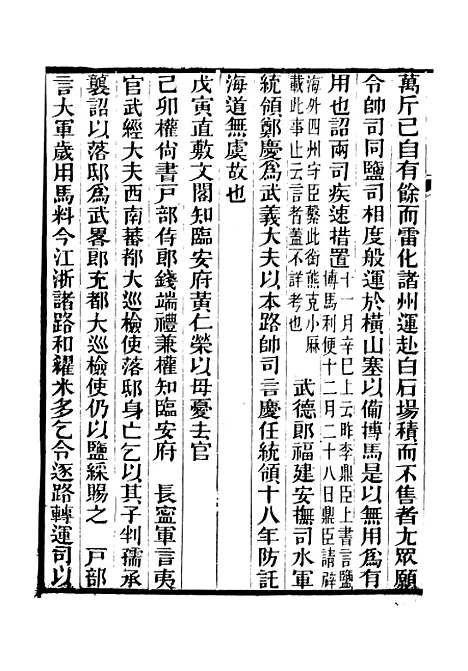 萬斤已自有餘而雷化諸州運赴白石場積而不售者尢眾願
令帥司同鹽司相度般運於橫山塞以備博馬是以無用爲有
用也詔兩司疾速措置十一月辛巳上云昨李鼎臣上書言鹽
博馬利便十二月二十八日鼎臣請辟
海外四州守臣繫此銜熊克小厤
載此事止云言者蓋不詳考也
武德郎福建安撫司水軍
統領鄭慶爲武義大夫以本路帥司言慶任統領十八年防託
海道無虞故也
戊寅直敷文閣知臨安府黃仁榮以母憂去官
己卯權尙書戸部侍郎錢端禮兼權知臨安府　長寧軍言夷
官武經大夫西南蕃都大巡檢使落邸身亡乞以其子判孺承
襲詔以落邸爲武畧郎充都大巡檢使仍以鹽綵賜之　戸部
言大軍歲用馬料今江浙諸路和糴米多乞令逐路轉運司以